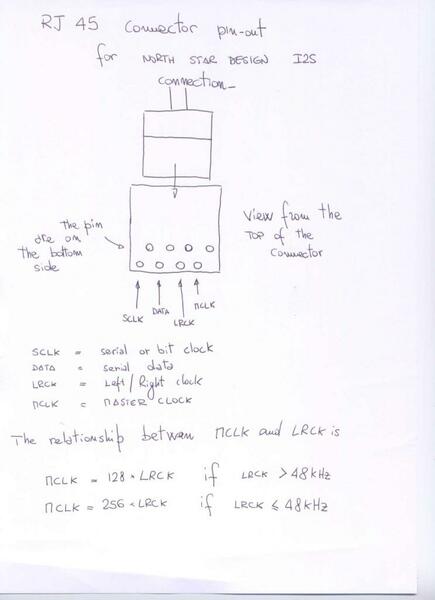 RJ 45 Connector pin-out
for NORTH STAR DESIGN I2S
connection_
The pin
are on
the bottom
side
View from the
TOP of the
connector
SCLK
DATA
LRCK
MCLK
SCLK = serial or bit clock
DATA = serial data
LRCK = Left/Right clock
MCLK = MASTER CLOCK
The relationship between MCLK and LRCK is
MCLK = 128 * LRCK if LRCK > 48kHz
MCLK = 256 * LRCK if LRCK ≤ 48kHz